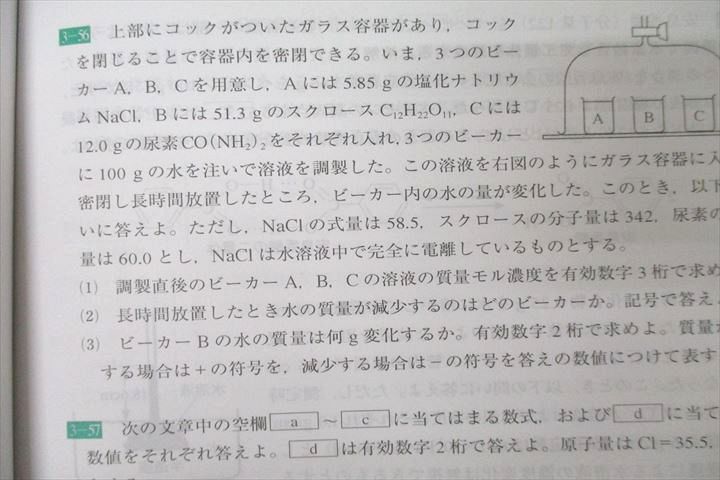 3-56 上部にコックがついたガラス容器があり,コック
を閉じることで容器内を密閉できる。いま,3つのビー
カーA,B,Cを用意し,Aには5.85 gの塩化ナトリウ
ムNaCl,Bには51.3 gのスクロースC₁₂H₂₂O₁₁,Cには
12.0 gの尿素CO(NH₂)₂をそれぞれ入れ,3つのビーカー
A B C
に100 gの水を注いで溶液を調製した。この溶液を右図のようにガラス容器に入
密閉し長時間放置したところ,ビーカー内の水の量が変化した。このとき,以下
いに答えよ。ただし,NaClの式量は58.5,スクロースの分子量は342,尿素の
量は60.0とし,NaClは水溶液中で完全に電離しているものとする。
(1) 調製直後のビーカーA,B,Cの溶液の質量モル濃度を有効数字3桁で求め
(2) 長時間放置したとき水の質量が減少するのはどのビーカーか。記号で答え
(3) ビーカーBの水の質量は何g変化するか。有効数字2桁で求めよ。質量が
する場合は+の符号を,減少する場合は−の符号を答えの数値につけて表す
3-57 次の文章中の空欄 a 〜 c に当てはまる数式,および d に当て
数値をそれぞれ答えよ。 d は有効数字2桁で答えよ。原子量はCl=35.5,